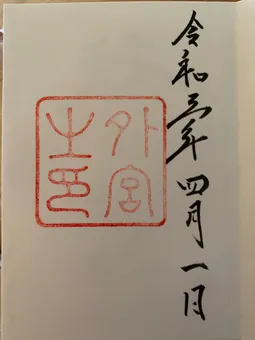 令和三年四月一日
外宮
之印